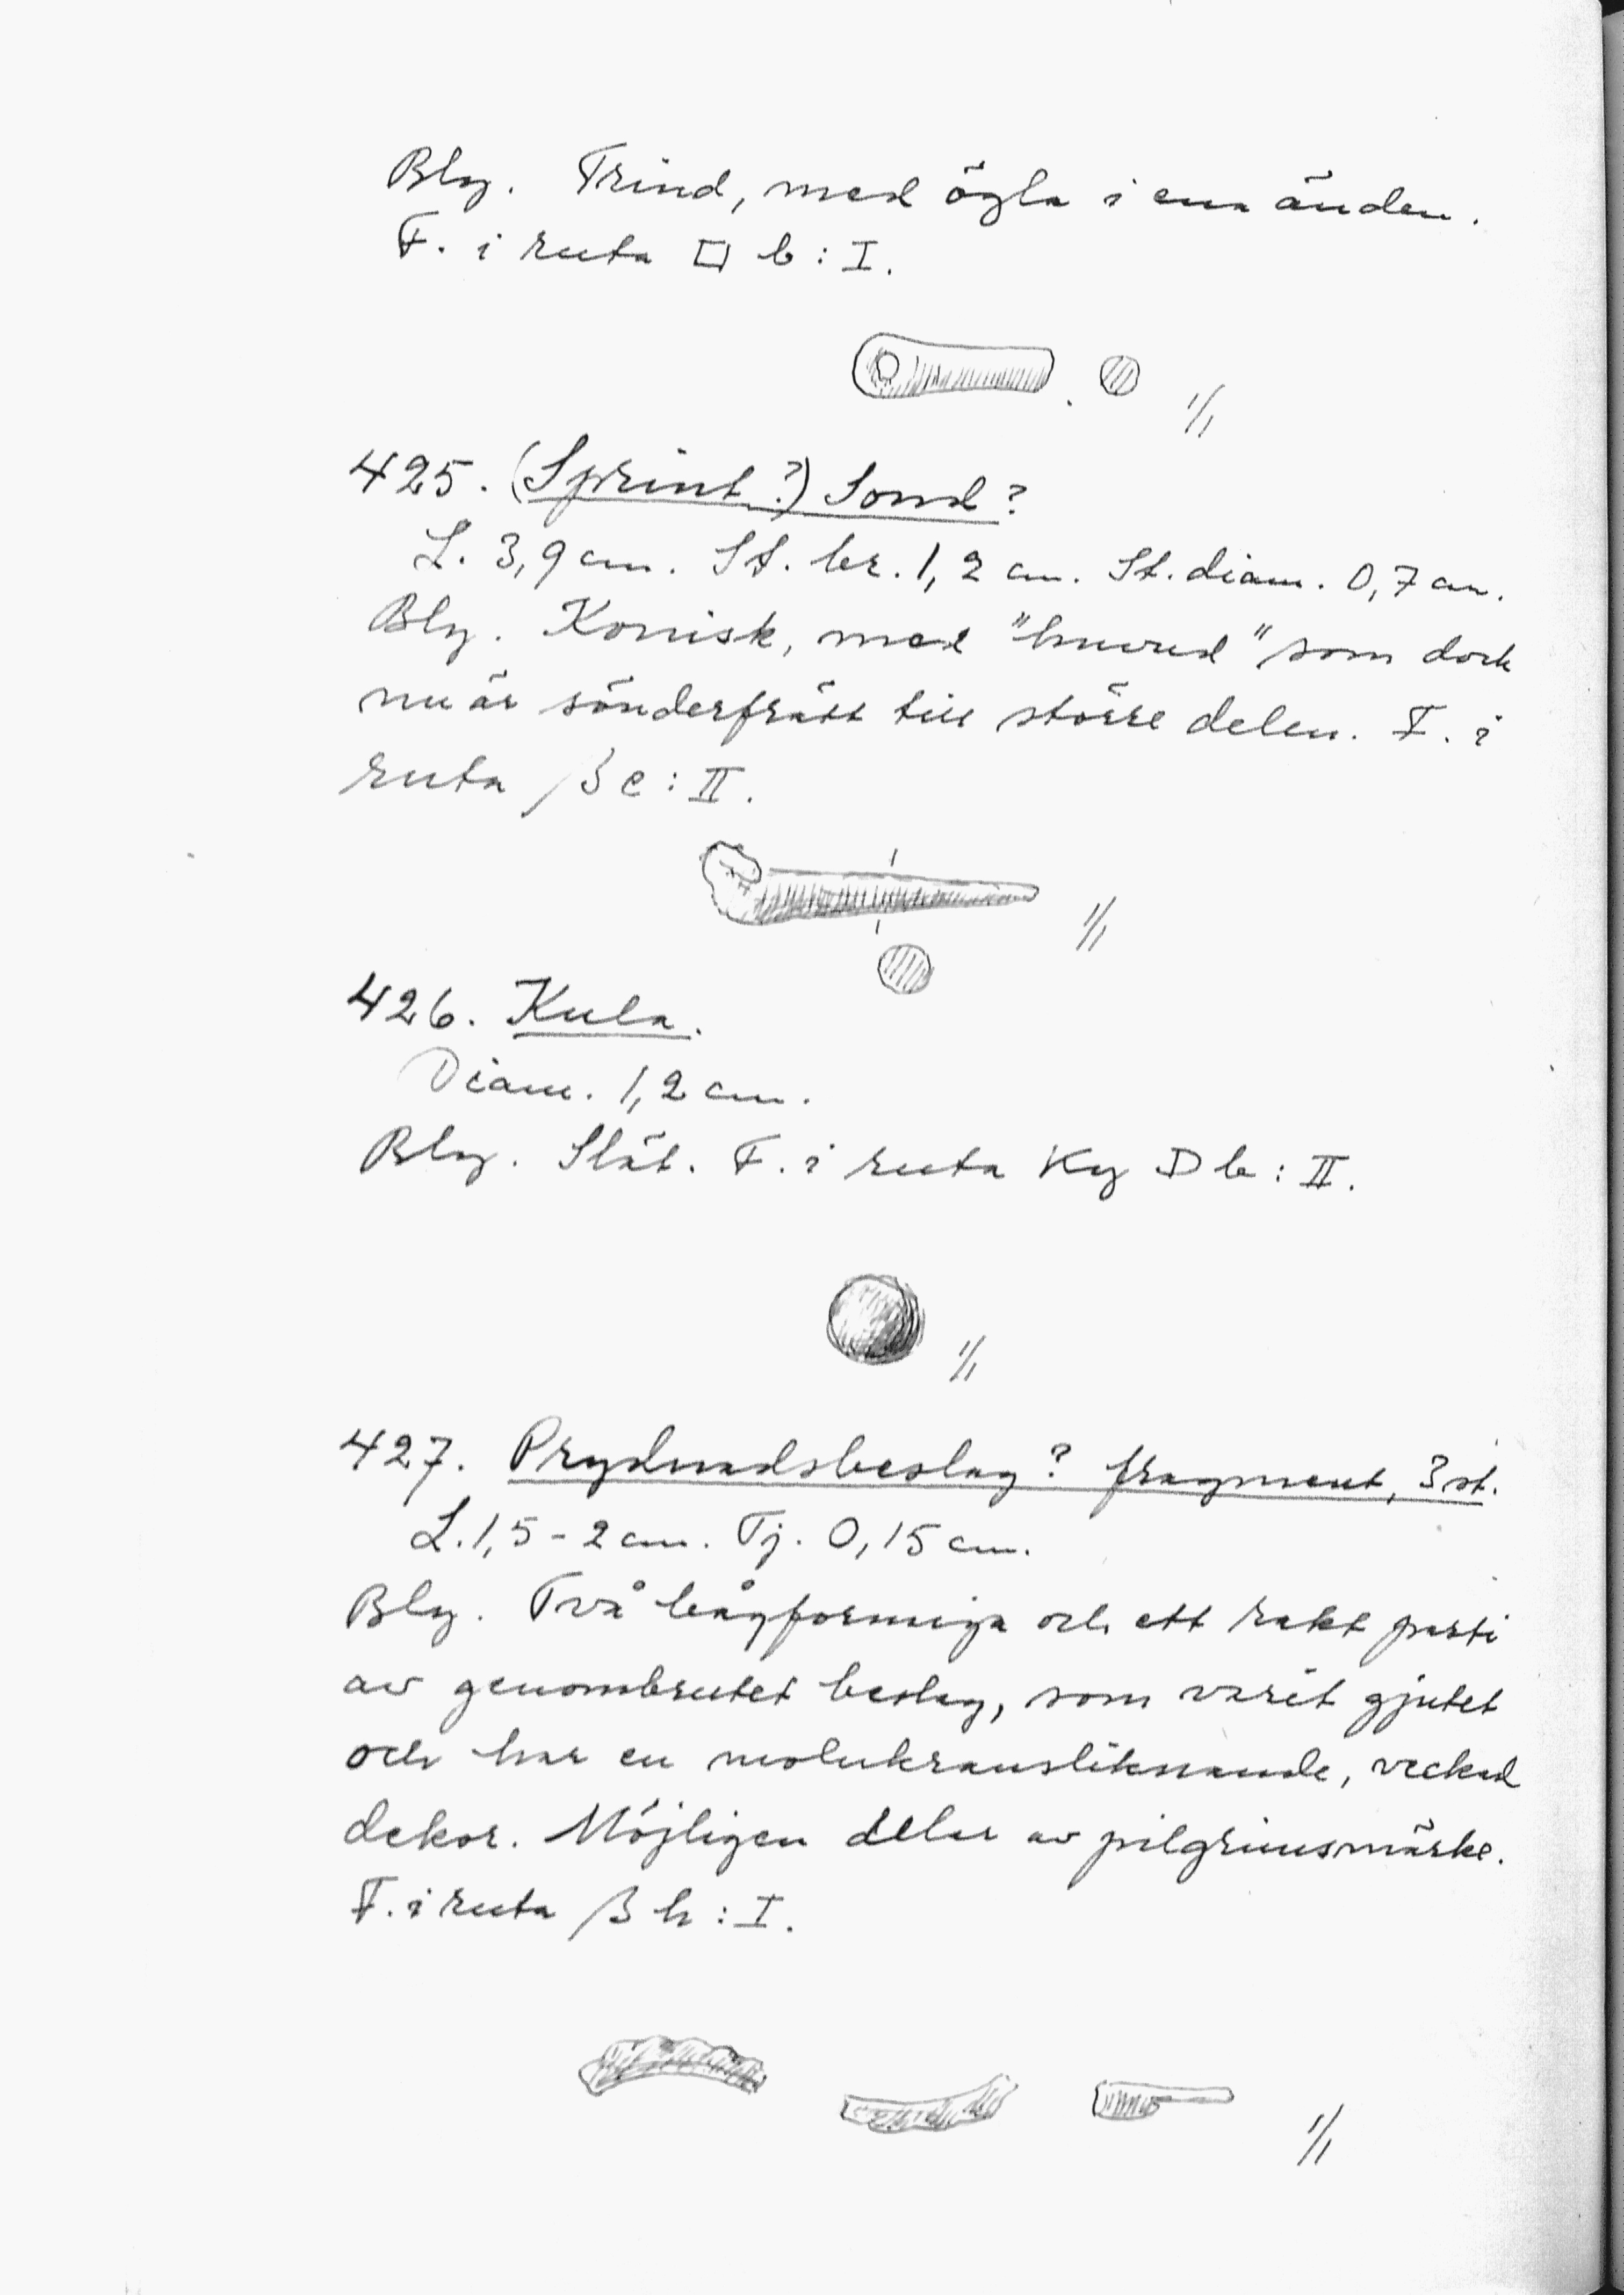 Bly. Trind, med ögla i ena änden.
F. i ruta □ b : I.
1/1
425. (Sprint?) Sond?
L. 3,9 cm. St. br. 1,2 cm. St. diam. 0,7 cm.
Bly. Konisk, med "huvud" som dock
nu är sönderfrätt till större delen. F. i
ruta β c : II.
1/1
426. Kula.
Diam. 1,2 cm.
Bly. Slät. F. i ruta Ky D b : II.
1/1
427. Prydnadsbeslag? fragment, 3 st.
L. 1,5 - 2 cm. Tj. 0,15 cm.
Bly. Två bågformiga och ett rakt parti
av genombrutet beslag, som varit gjutet
och har en molnkransliknande, veckad
dekor. Möjligen delar av pilgrimsmärke.
F. i ruta β h : I.
1/1